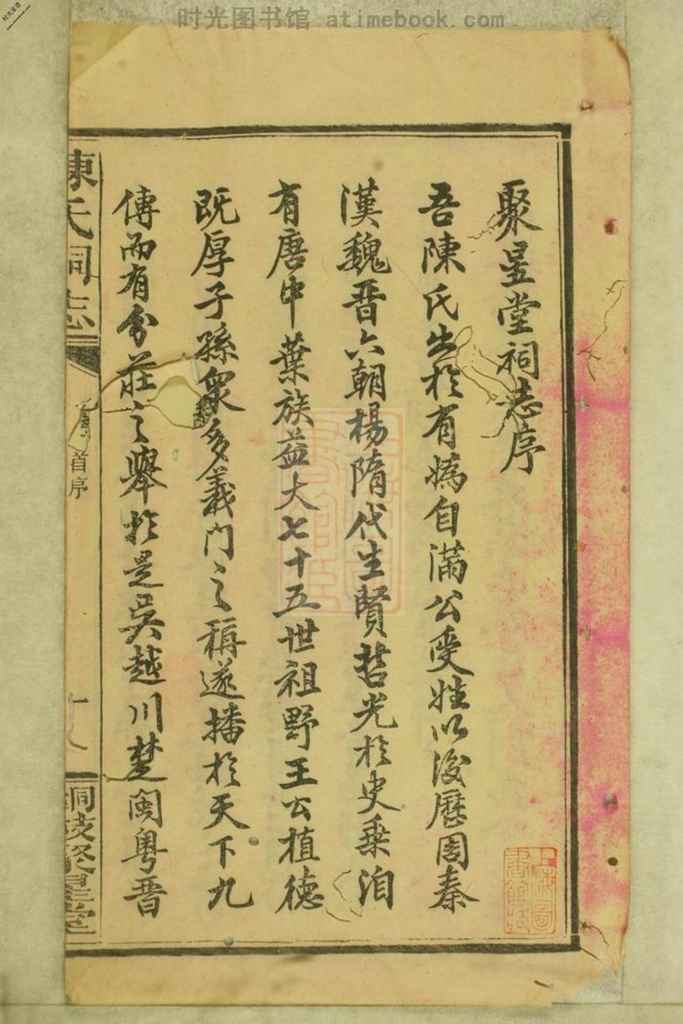 时光图书馆 atimebook.com
聚星堂祠志序
吾陳氏出於有媯自滿公受姓以後歷周秦
漢魏晉六朝楊隋代生賢哲光於史乘洎
有唐中葉族益大七十五世祖野王公植德
既厚子孫眾多義門之稱遂播於天下九
傳而有分莊之舉於是吳越川楚閩粵晉
陳氏祠志
首序
聚星堂